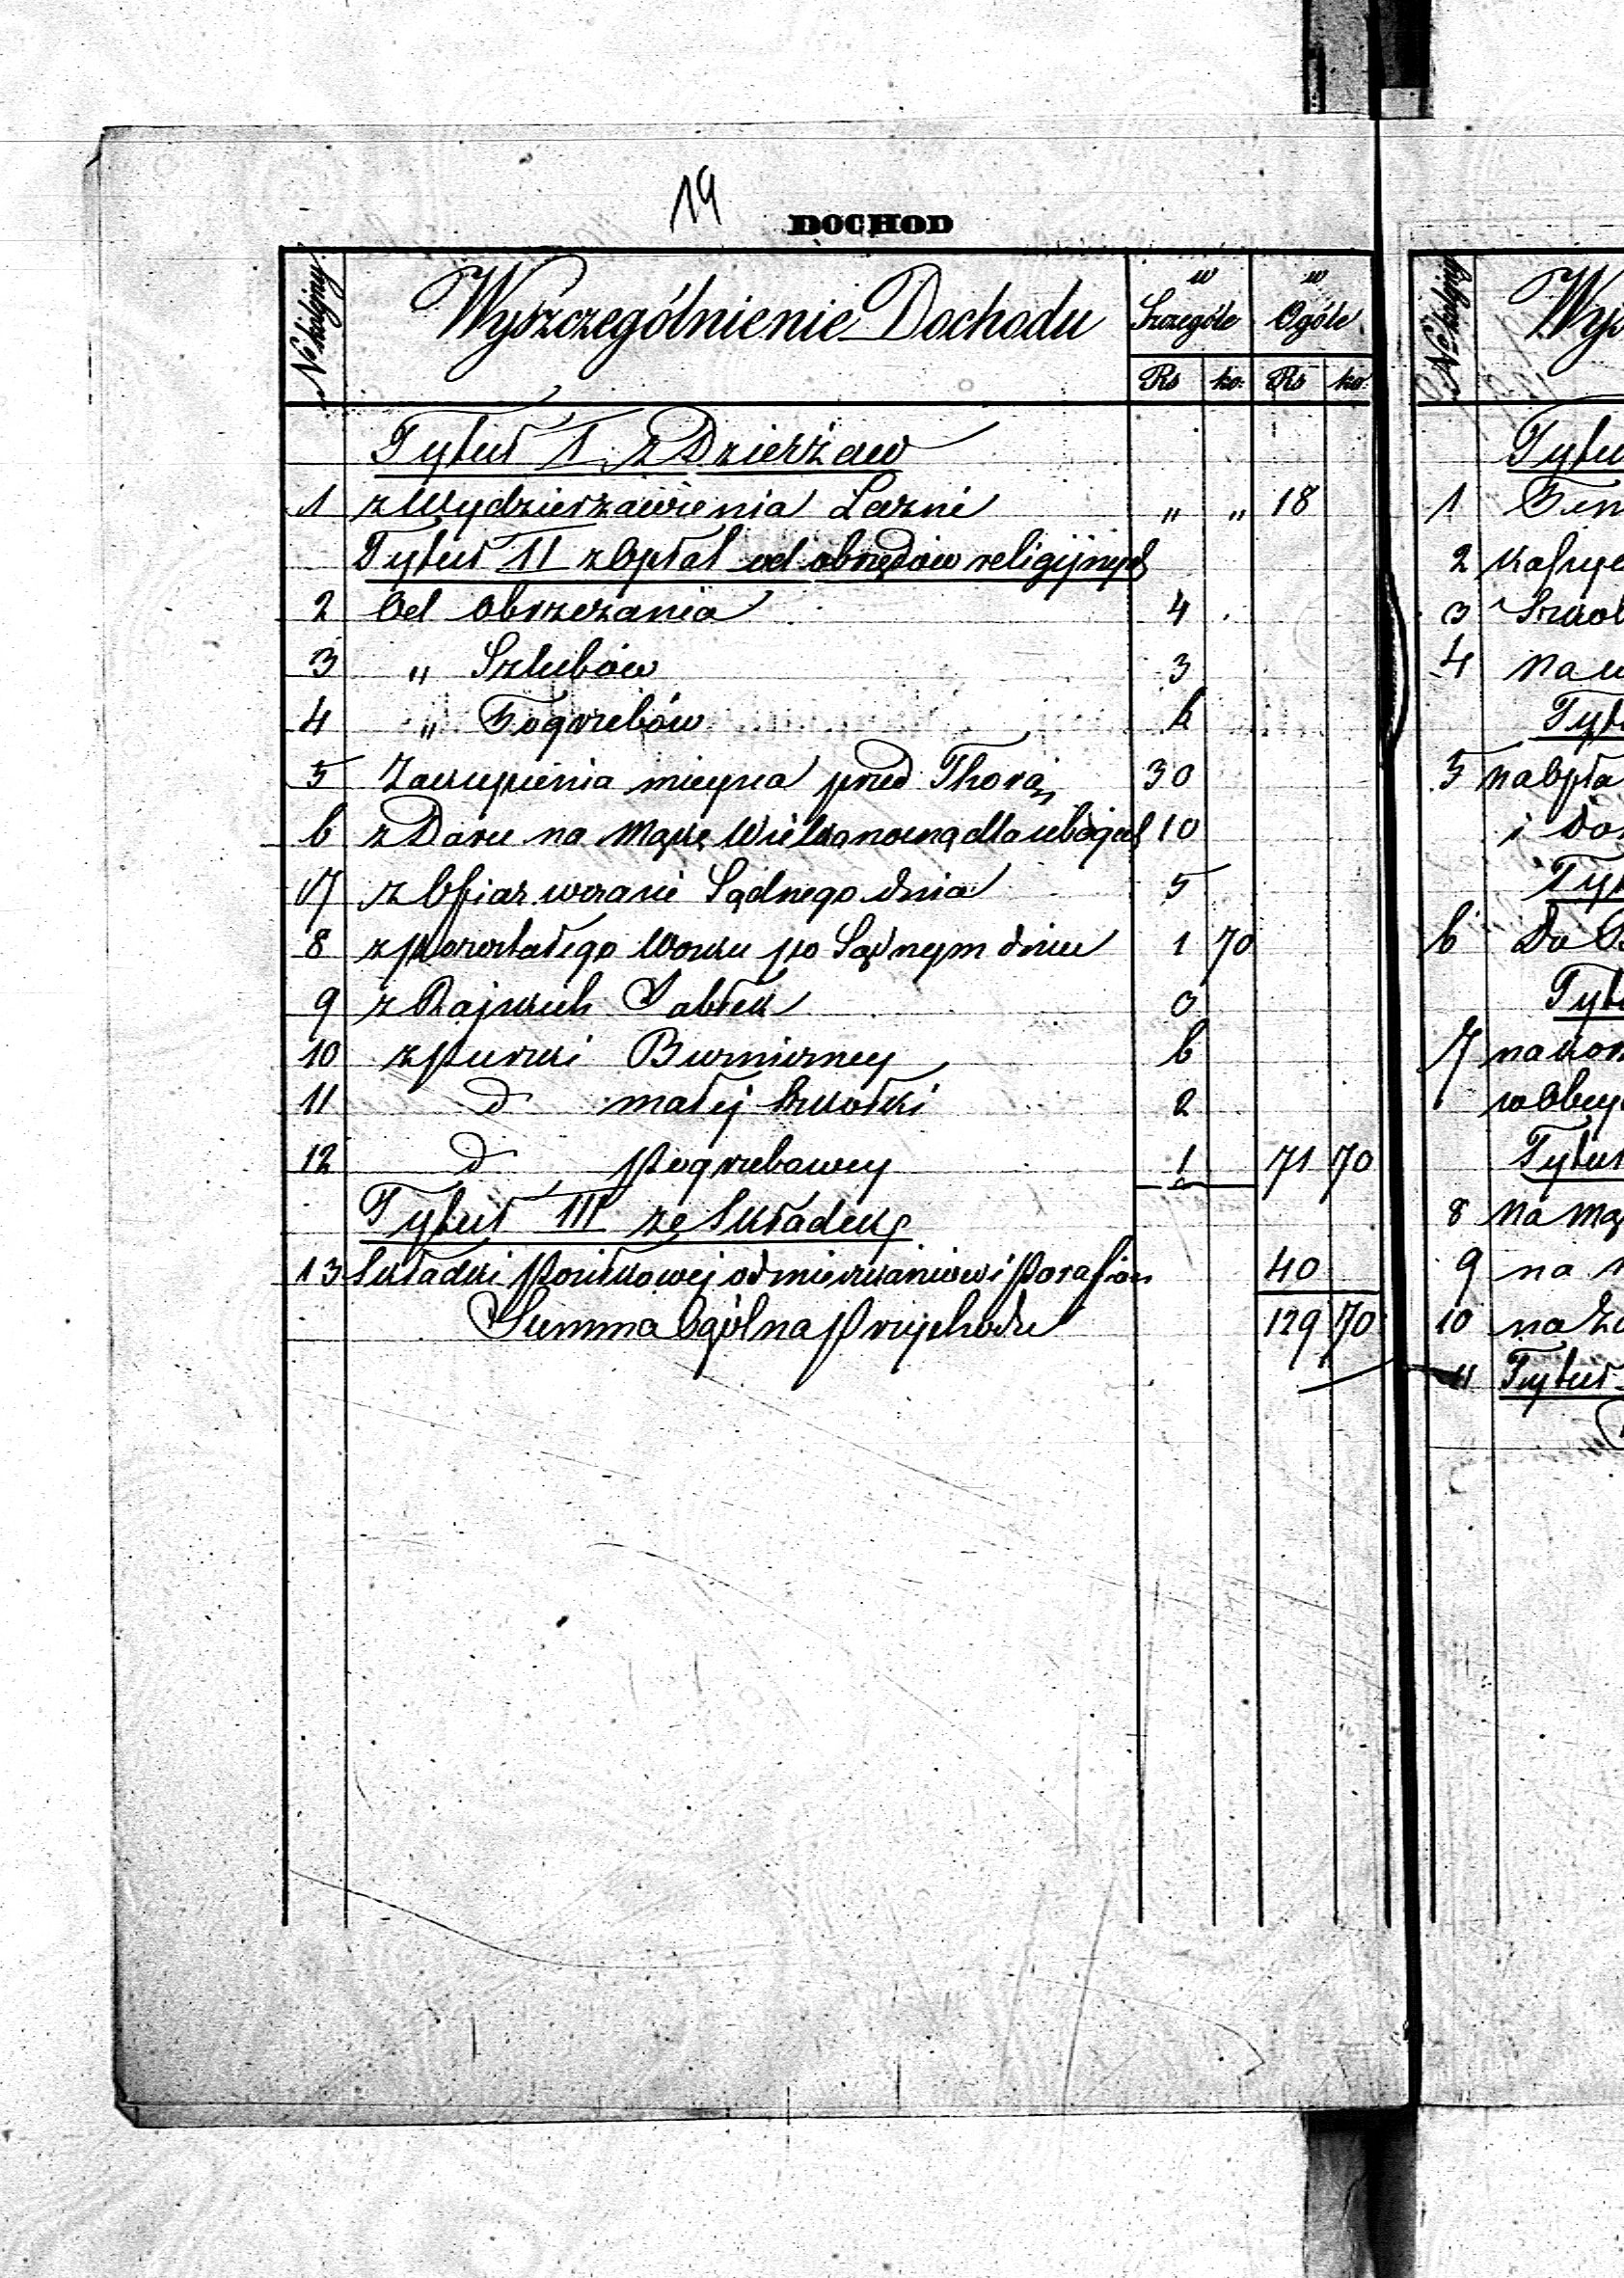 19
DOCHOD
No kolejny Wyszczególnienie Dochodu w Szczególe w Ogóle
Rs ko. Rs ko.
Tytuł I z Dzierżaw
1 z Wydzierzawienia Łazni " " 18
Tytuł II z Opłat od obrzędów religijnych
2 Od Obrzezania 4
3 " Szlubów 3
4 " Pogrzebów 6
5 Zakupienia mieysca przed Thorą 30
6 z Daru na Mąkę Wielkanocną dla ubogich 10
7 z Ofiar w czasie Sądnego dnia 5
8 z pozostałego Wosku po Sądnym dniu 1 70
9 z Rajskich Jabłek 3
10 z puszki Burnirney 6
11 d małej Szkołki 2
12 d Pogrzebowey 1 71 70
Tytuł III ze Składek
13 Składki Posiłkowej od mieszkaniów i Parafian 40
Summa Ogólna Przychodu 129 70
No kolejny Wy
Tytu
1
2
3 Szkol
4 Na
Tytu
5 na Opła
i do
Tyt
6 Do
Tytu
7 na
w Obey
Tytuł
8 Na Mą
9 na
10 na
11 Tytuł